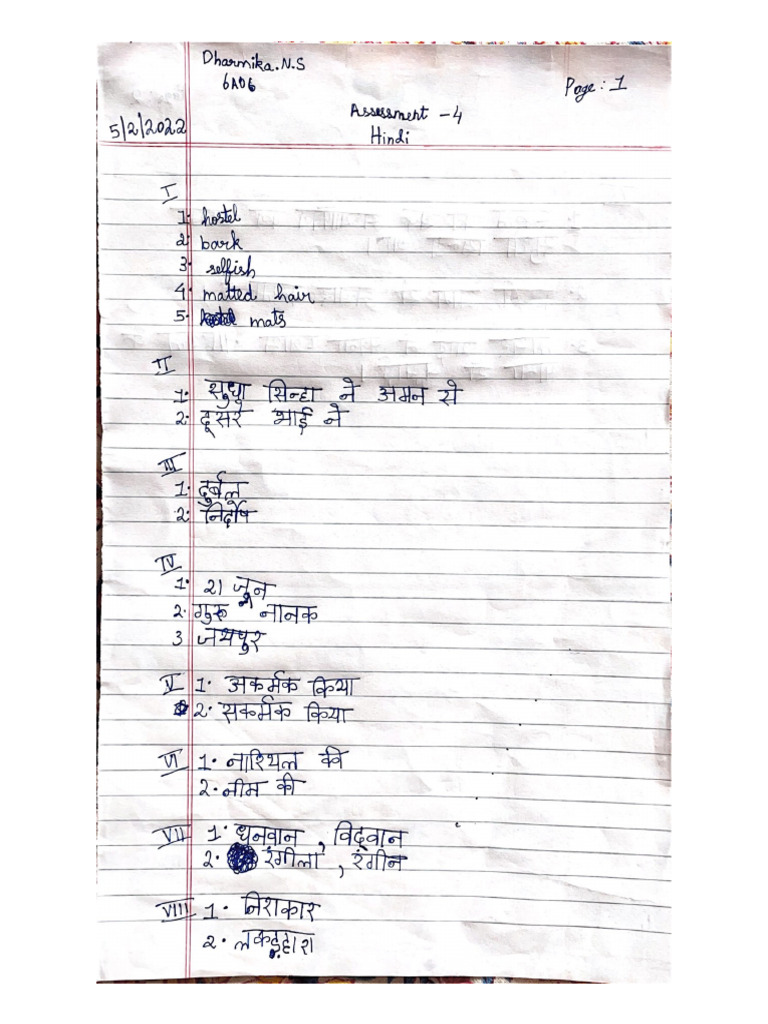 Dharmika.N.S
6A06
Page: 1
Assessment - 4
5/2/2022
Hindi
I
1. hostel
2. bark
3. selfish
4. matted hair
5. mats
II
1. सुधा सिन्हा ने अमन से
2. दूसरे भाई ने
III
1. दुर्बल
2. निर्दोष
IV
1. 21 जून
2. गुरू नानक
3 जयपुर
V 1. अकर्मक किया
2. सकर्मक किया
VI 1. नारियल की
2. नीम की
VII 1. धनवान, विद्वान
2. रंगीला, रंगीन
VIII 1. निराकार
2. लकड़हारा